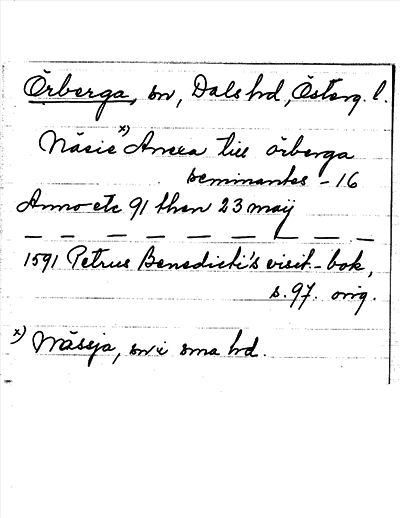 Örberga, sn, Dals hd, Österg. l.
Näsie x) Annexa till örberga
seminantes - 16
Anno etc 91 then 23 maij
1591 Petrus Benedicti's visit.-bok,
s. 97. orig.
x) Wässja, sn i sma hd.